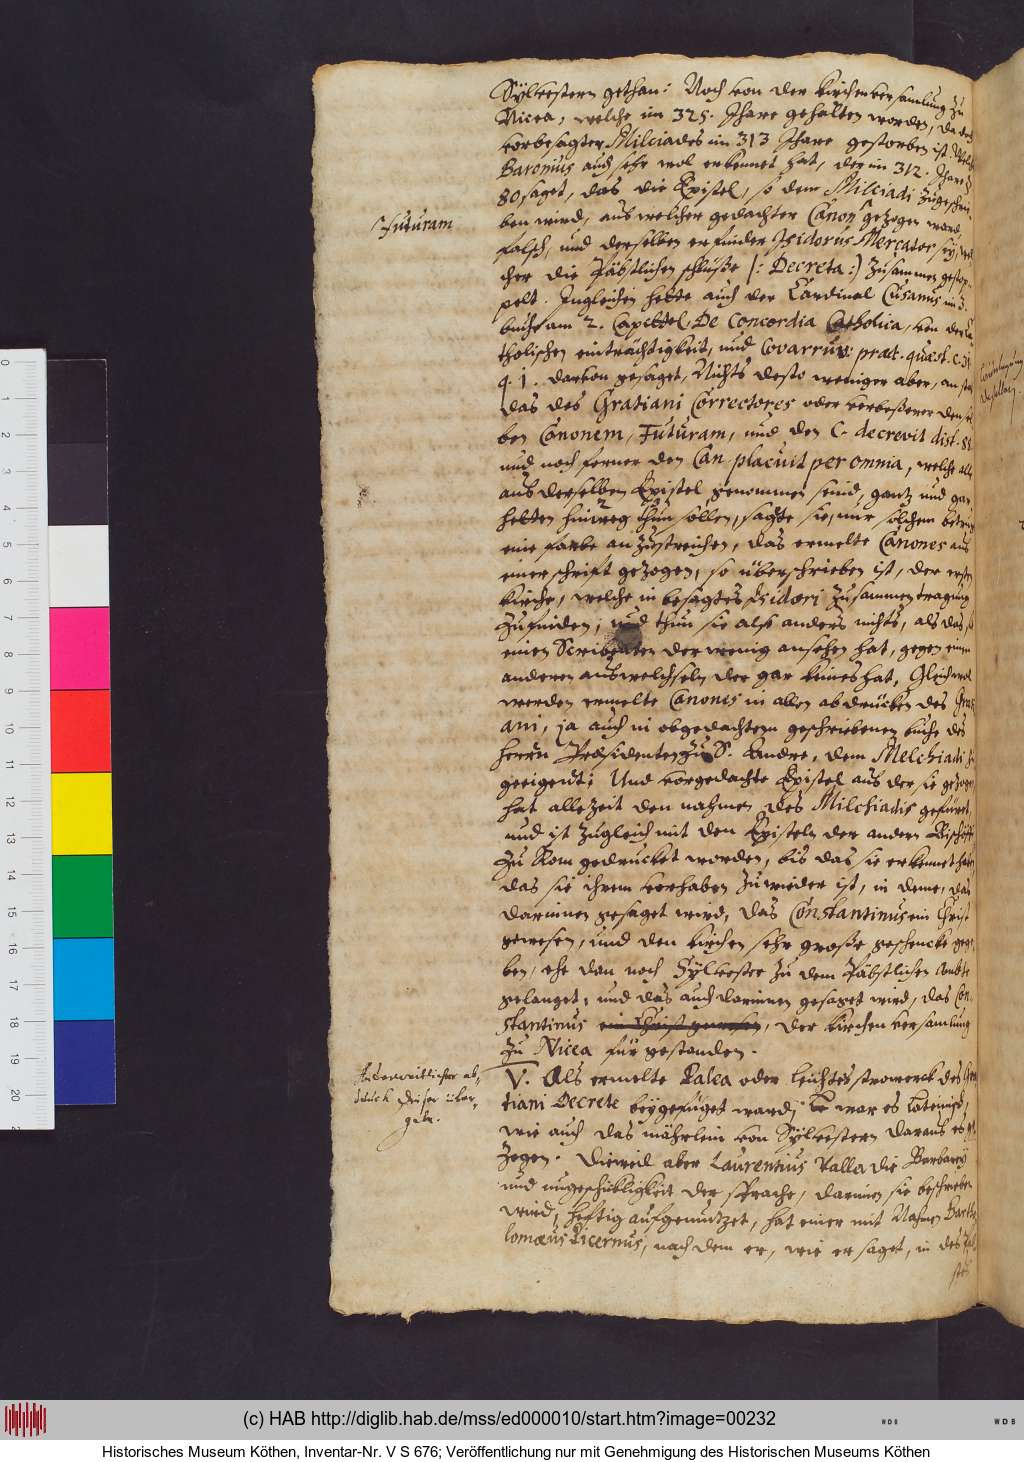 Sylvestern gethan: Noch von der Kirchenversamlung zu
Nicea, welche im 325. Jhare gehalten worden, da doch
vorbesagter Milciades im 313 Jhare gestorben ist. Welchs
Baronius auch sehr wol erkennet hat, der im 312. Jhare §
80 saget, das die Epistel, so dem Milciadi zugeschrie-
ben wird, aus welcher gedachter Canon gezogen ward,
futuram
falsch, und derselben erfinder Isidorus Mercator sey, wel-
cher die Päbstlichen schlüße /: Decreta :/ zusammen gestop-
pelt. Ingleichen hette auch der Cardinal Cusanus im 3.
buche am 2. Capittel, De Concordia Catholica, von der Ca-
tholischen einträchtigkeit, und Covarruv: pract. quæst. c. 31
q. 1. davon gesaget, Nichts desto weniger aber, an stat
das des Gratiani Correctores oder verbeßerer densel-
ben Canonem, Futuram, und den C. decrevit dist. 88
und noch ferner den Can placuit per omnia, welche alle
aus derselben Epistel genommen seind, gantz und gar
hetten hinweg thun sollen, sagte sie, nur solchem betrug
eine farbe anzustreichen, das ermelte Canones aus
einer schrift gezogen, so überschrieben ist, der ersten
Kirche, welche in besagtes Isidori zusammentragung
zufinden; und thun sie also anders nichts, als das sie
einen Scribenten der wenig ansehen hat, gegen einen
anderen auswechseln der gar keines hat. Gleichwol
werden ermelte Canones in allen abdrücken des Grati
ani, ja auch in obgedachtem geschriebenen buche des
herrn Præsidenten zu S. Andre, dem Melchiadi zu
geeigent; Und vorgedachte Epistel aus der sie gezogen
hat alle zeit den nahmen des Milchiadis gefüret,
und ist zugleich mit den Episteln der andern Bischöffe
zu Rom gedrucket worden, bis das sie erkennet haben
das sie ihrem vorhaben zuwieder ist, in deme, das
darinnen gesaget wird, das Constantinus ein Christ
gewesen, und den Kirchen sehr große geschencke gege-
ben, ehe dan noch Sylvester zu dem Päbstlichen Ambte
gelanget, und das auch darinnen gesaget wird, das Con-
stantinus ein Christ gewesen, der Kirchen versamlung
zu Nicea für gestanden.
V. Als ermelte Palea oder leichtes strowerck des Gra
tiani Decrete beygefüget ward, war es Lateinisch,
wie auch das mährlein von Sylvestern daraus es ge
zogen. Dieweil aber Laurentius Valla die Barbarey
und ungeschickligkeit der sprache, darinnen sie beschrieben
wird, heftig aufgemutzet, hat einer mit Nahmen Bartho
lomæus Picernus, nach dem er, wie er saget, in des Pab
stes